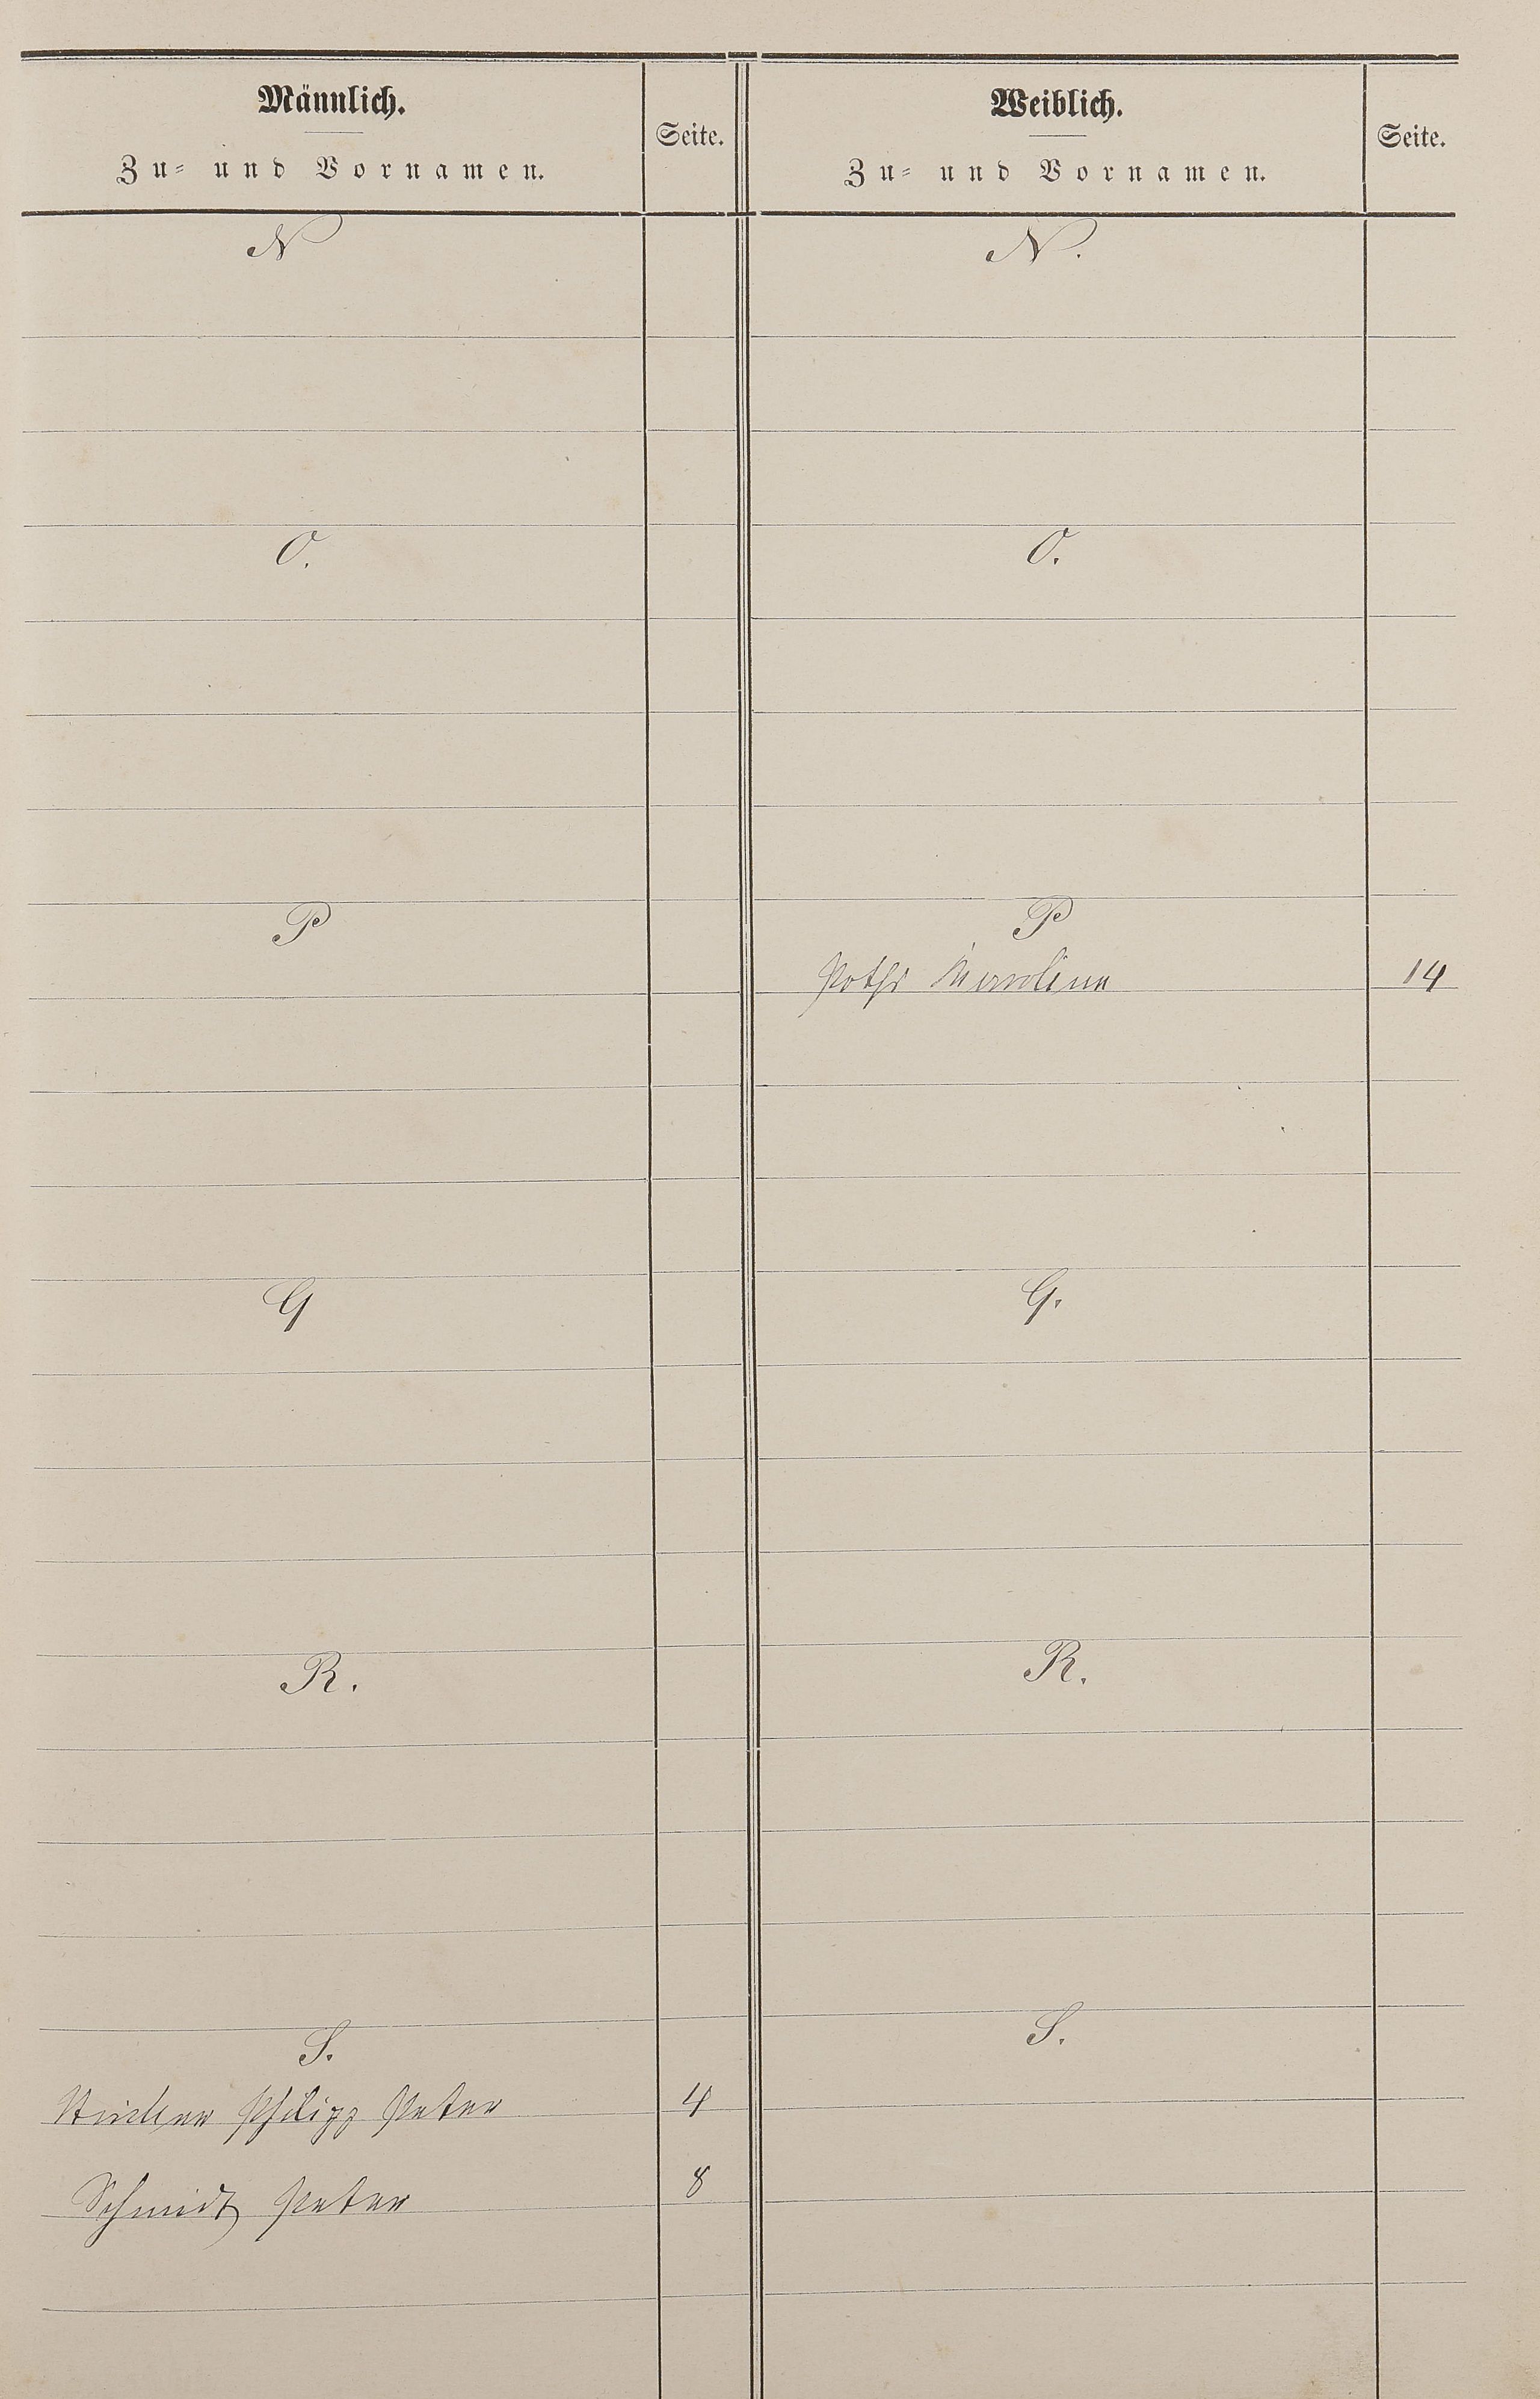 Männlich.
Zu- und Vornamen.
Seite.
Weiblich.
Zu- und Vornamen.
Seite.
N
N.
O.
O.
P
P
14
Q
Q.
R.
R.
S.
S.
Philipp Peter 4
Schmidt Peter 8